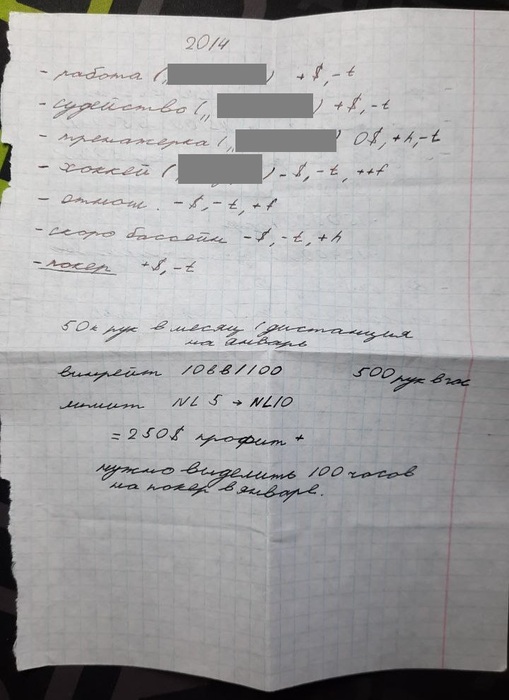 2014
- работа ( ) +$, -t
- судейство (,, ) +$, -t
- тренажерка (,, ) 0$, +h, -t
- хоккей (, ) -$, -t, ++f
- отнош. -$, -t, +f
- скоро бассейн -$, -t, +h
- покер +$, -t
50к рук в месяц (дистанция
на январь
винрейт 10BB/100 500 рук в час
лимит NL5 → NL10
= 250$ профит +
нужно выделить 100 часов
на покер в январе.